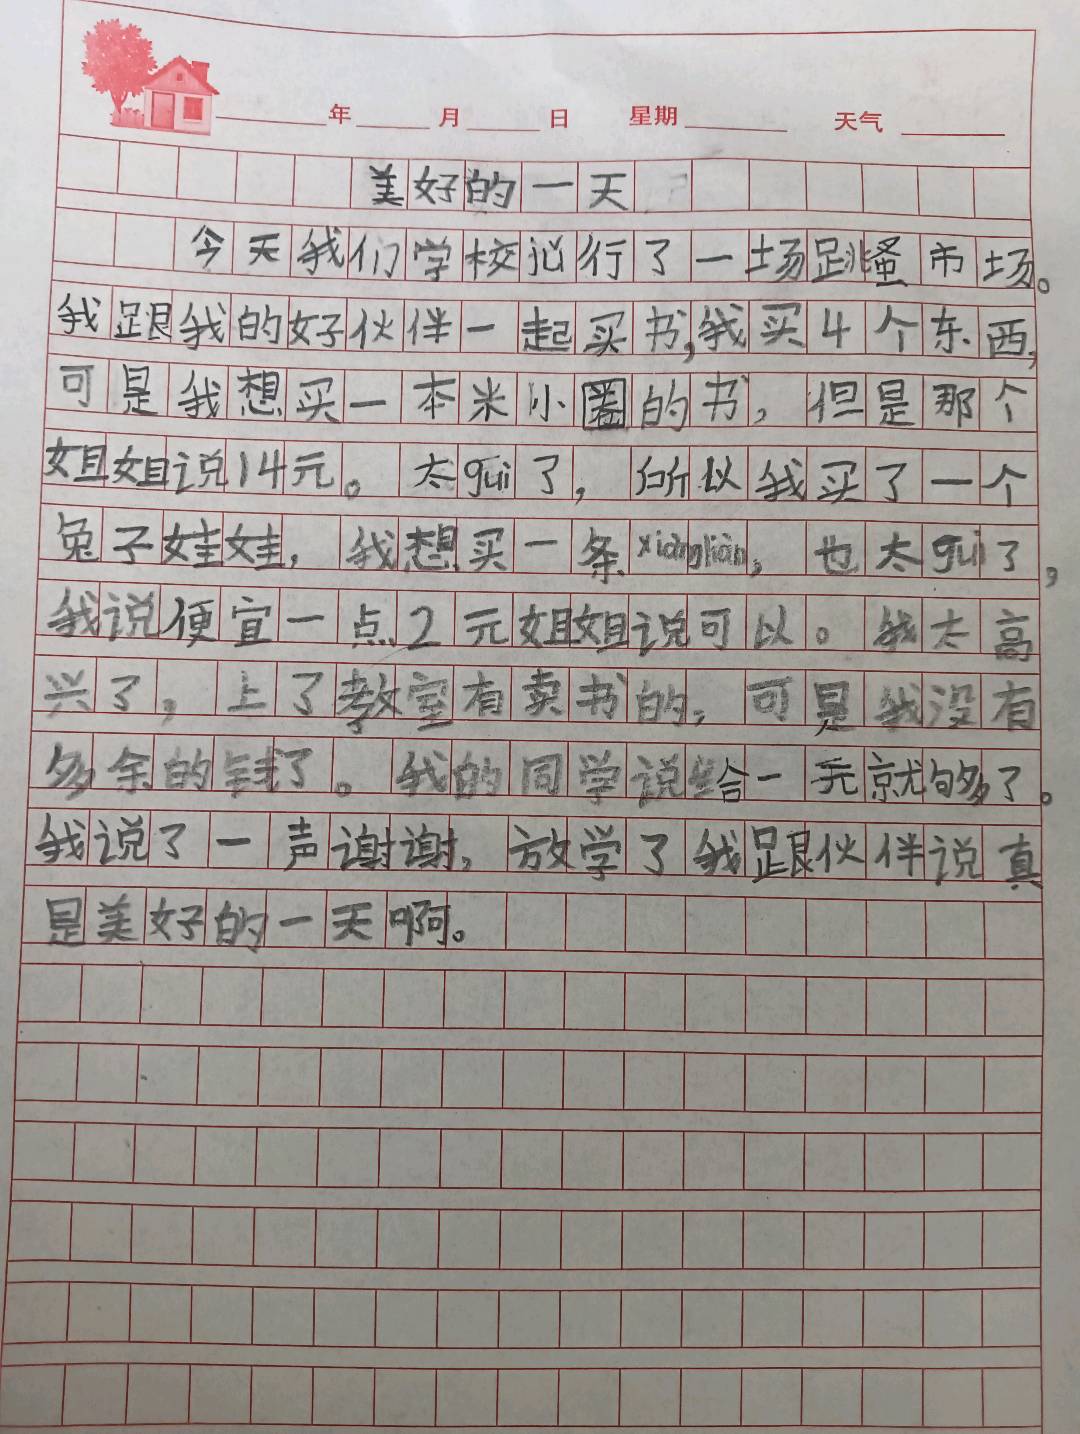 年 月 日 星期 天气
美好的一天
今天我们学校行了一场跳蚤市场。
我跟我的好伙伴一起买书,我买4个东西,
可是我想买一本米小圈的书,但是那个
姐姐说14元。太guì了,所以我买了一个
兔子娃娃,我想买一条xiàngliàn,也太guì了,
我说便宜一点2元姐姐说可以。我太高
兴了,上了教室有卖书的,可是我没有
多余的钱了。我的同学说给一元就够了。
我说了一声谢谢,放学了我跟伙伴说真
是美好的一天啊。